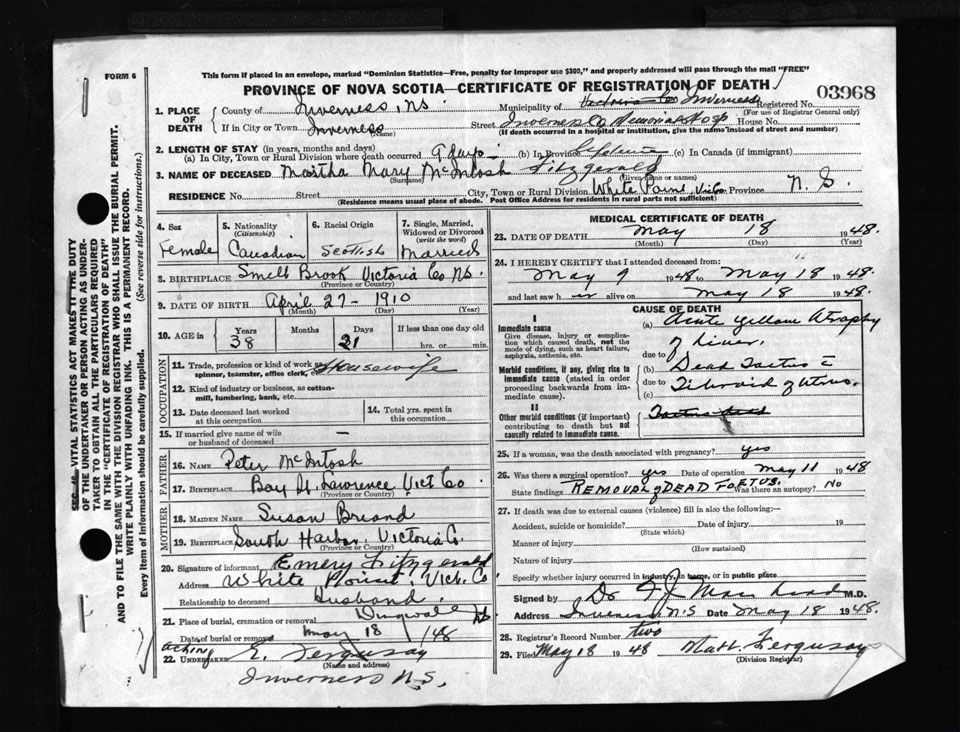 FORM 6
This form if placed in an envelope, marked "Dominion Statistics—Free, penalty for improper use $300," and properly addressed will pass through the mail "FREE"
PROVINCE OF NOVA SCOTIA—CERTIFICATE OF REGISTRATION OF DEATH
03968
1. PLACE OF DEATH
County of Inverness, NS Municipality of Victoria Co Inverness Registered No.
(For use of Registrar General only)
If in City or Town Inverness (Name) Street Inverness Co Memorial Hosp House No.
(If death occurred in a hospital or institution, give the name instead of street and number)
2. LENGTH OF STAY (in years, months and days)
(a) In City, Town or Rural Division where death occurred 9 days (b) In Province Lifetime (c) In Canada (if immigrant)
3. NAME OF DECEASED Martha Mary McIntosh Fitzgerald
(Surname) (Given name or names)
RESIDENCE No. Street City, Town or Rural Division White Point, Vic Co Province N. S.
(Residence means usual place of abode. Post Office Address for residents in rural parts not sufficient)
SEC. 46. VITAL STATISTICS ACT MAKES IT THE DUTY
OF THE UNDERTAKER OR PERSON ACTING AS UNDER-
TAKER TO OBTAIN ALL THE PARTICULARS REQUIRED
IN THE "CERTIFICATE OF REGISTRATION OF DEATH"
AND TO FILE THE SAME WITH THE DIVISION REGISTRAR WHO SHALL ISSUE THE BURIAL PERMIT.
WRITE PLAINLY WITH UNFADING INK. THIS IS A PERMANENT RECORD.
Every item of information should be carefully supplied. (See reverse side for instructions.)
4. Sex Female
5. Nationality (Citizenship) Canadian
6. Racial Origin Scottish
7. Single, Married, Widowed or Divorced (write the word) Married
8. BIRTHPLACE Smelt Brook Victoria Co NS.
(Province or Country)
9. DATE OF BIRTH April 27 - 1910
(Month) (Day) (Year)
10. AGE in Years 38 Months Days 21 If less than one day old hrs. or min.
OCCUPATION
11. Trade, profession or kind of work as spinner, teamster, office clerk, Housewife
12. Kind of industry or business, as cotton-mill, lumbering, bank, etc.
13. Date deceased last worked at this occupation
14. Total yrs. spent in this occupation
15. If married give name of wife or husband of deceased —
FATHER
16. NAME Peter McIntosh
17. BIRTHPLACE Bay St. Lawrence Vict Co
(Province or Country)
MOTHER
18. MAIDEN NAME Susan Briand
19. BIRTHPLACE South Harbor, Victoria Co.
(Province or Country)
20. Signature of informant Emery Fitzgerald
Address White Point, Vict. Co
Relationship to deceased Husband
21. Place of burial, cremation or removal Dingwall NS
Date of burial or removal May 18 /48
acting
22. UNDERTAKER E. Ferguson
(Name and address)
Inverness N.S.
MEDICAL CERTIFICATE OF DEATH
23. DATE OF DEATH May 18 1948.
(Month) (Day) (Year)
24. I HEREBY CERTIFY that I attended deceased from:
May 9 1948 to May 18 1948.
and last saw her alive on May 18 1948.
CAUSE OF DEATH
I
Immediate cause
Give disease, injury or complication which caused death, not the mode of dying, such as heart failure, asphyxia, asthenia, etc.
(a) Acute yellow Atrophy of Liver.
due to
Morbid conditions, if any, giving rise to immediate cause (stated in order proceeding backwards from immediate cause).
(b) Dead Foetus c̄
due to Fibroid of Uterus.
(c)
II
Other morbid conditions (if important) contributing to death but not causally related to immediate cause.
Foetus dead
25. If a woman, was the death associated with pregnancy? yes
26. Was there a surgical operation? yes Date of operation May 11 1948
State findings REMOVAL of DEAD FOETUS. Was there an autopsy? No
27. If death was due to external causes (violence) fill in also the following:—
Accident, suicide or homicide? Date of injury 19
(State which)
Manner of injury
(How sustained)
Nature of injury
Specify whether injury occurred in industry, in home, or in public place
Signed by Dr M.D.
Address Inverness N.S Date May 18 1948.
28. Registrar's Record Number two
29. Filed May 18 1948 Matt. Ferguson
(Division Registrar)